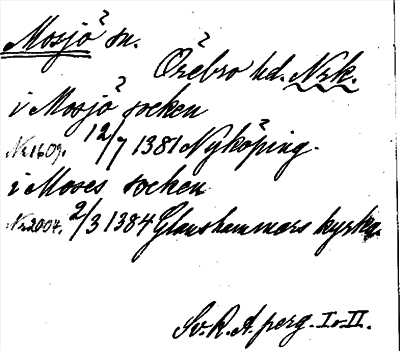 Mosjö sn.
Örebro hd. Nrk.
i Mosjö socken
No 1609. 12/7 1381 Nyköping.
i Moses socken
No 2004. 2/3 1384 Glanshammars kyrka.
Sv. R. A. perg. I-II.